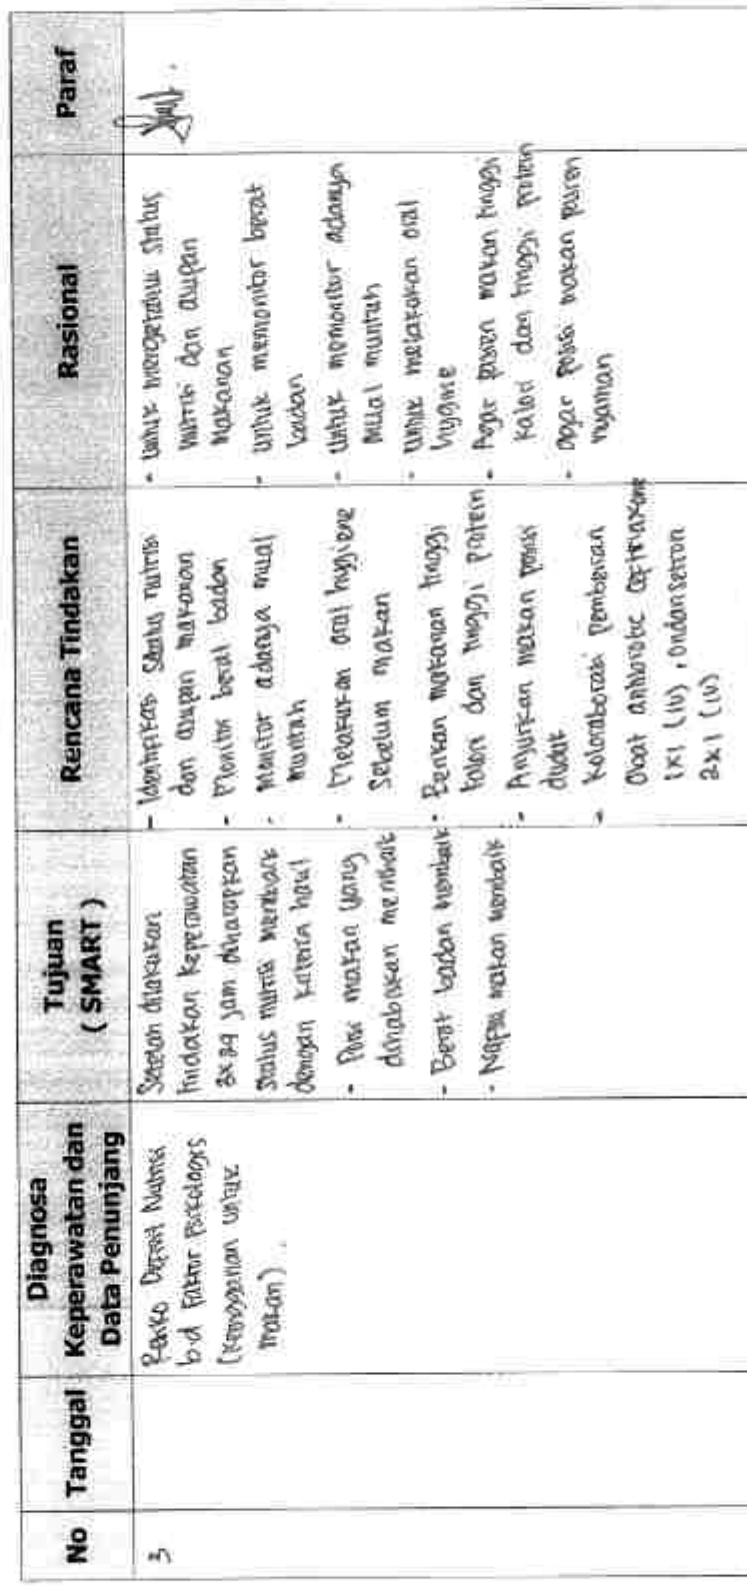 No
Tanggal
Diagnosa
Keperawatan dan
Data Penunjang
Tujuan
( SMART )
Rencana Tindakan
Rasional
Paraf
3
Resiko Defisit Nutrisi
b.d Faktor Psikologis
(Keengganan untuk
makan).
Setelah dilakukan
tindakan keperawatan
3x24 jam diharapkan
status nutrisi membaik
dengan kriteria hasil
- Porsi makan yang
dihabiskan membaik
- Berat badan membaik
- Napsu makan membaik
- Identifikasi status nutrisi
dan asupan makanan
- Monitor berat badan
- Monitor adanya mual
muntah
- Melakukan oral hygiene
sebelum makan
- Berikan makanan tinggi
kalori dan tinggi protein
- Anjurkan makan posisi
duduk
- Kolaborasi pemberian
obat antibiotic ceftriaxone
1x1 (IV), ondansetron
2x1 (IV)
- Untuk mengetahui status
nutrisi dan asupan
makanan
- Untuk memonitor berat
badan
- Untuk memonitor adanya
mual muntah
- Untuk melakukan oral
hygine
- Agar pasien makan tinggi
kalori dan tinggi protein
- agar posisi makan pasien
nyaman